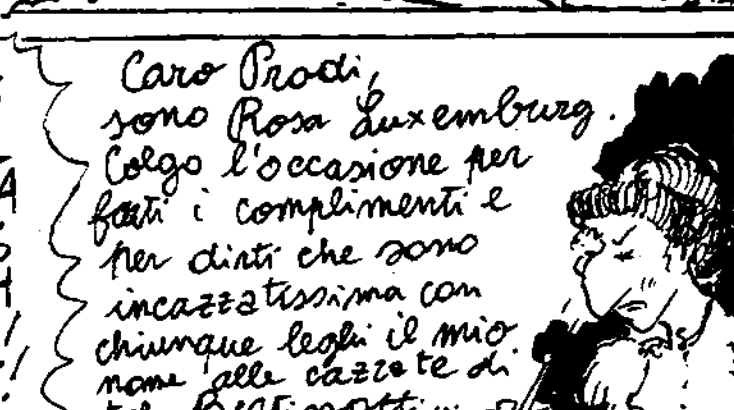 Caro Prodi,
sono Rosa Luxemburg.
Colgo l'occasione per
farti i complimenti e
per dirti che sono
incazzatissima con
chiunque leghi il mio
nome alle cazzate di